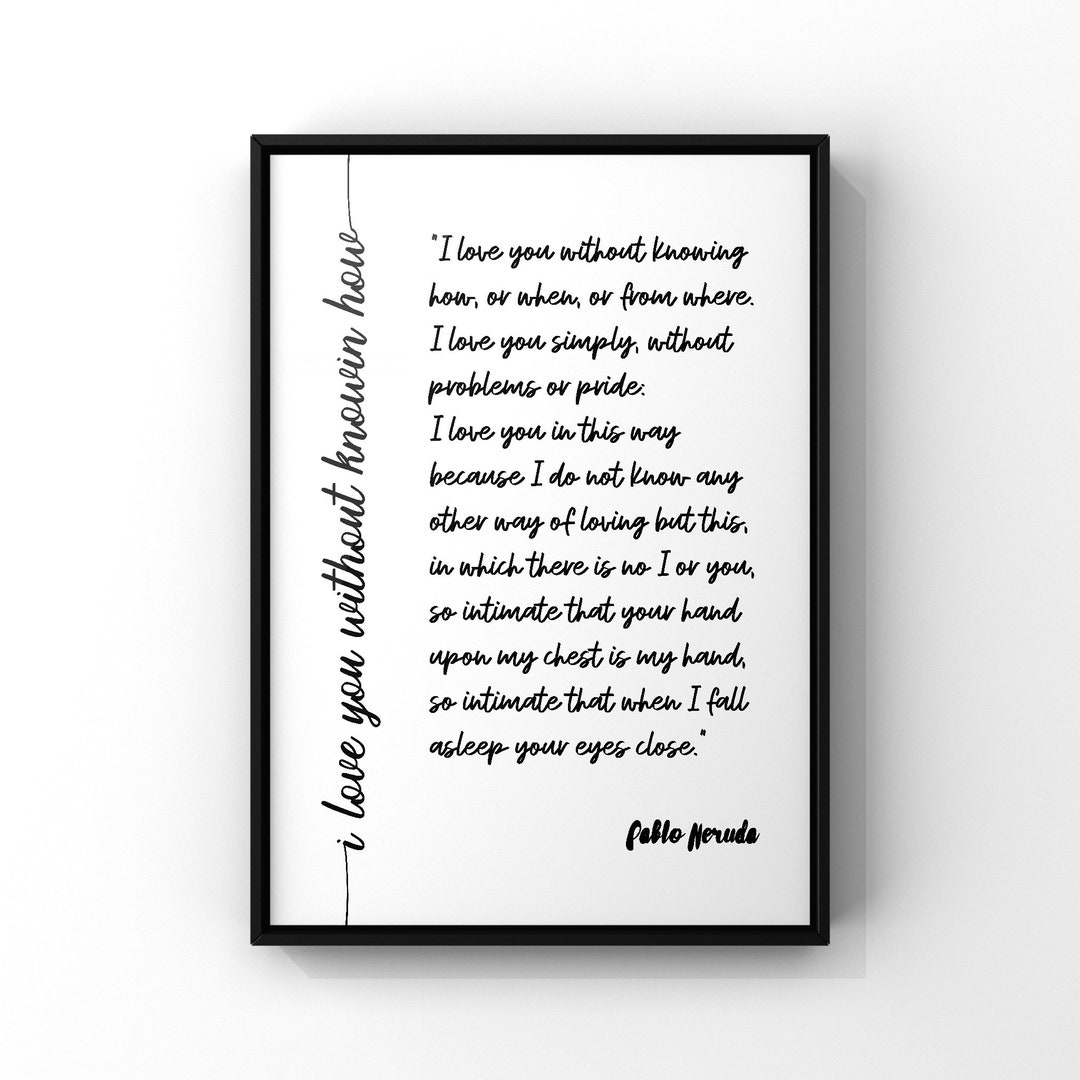 i love you without knowin how
"I love you without knowing
how, or when, or from where.
I love you simply, without
problems or pride:
I love you in this way
because I do not know any
other way of loving but this,
in which there is no I or you,
so intimate that your hand
upon my chest is my hand,
so intimate that when I fall
asleep your eyes close."
Pablo Neruda